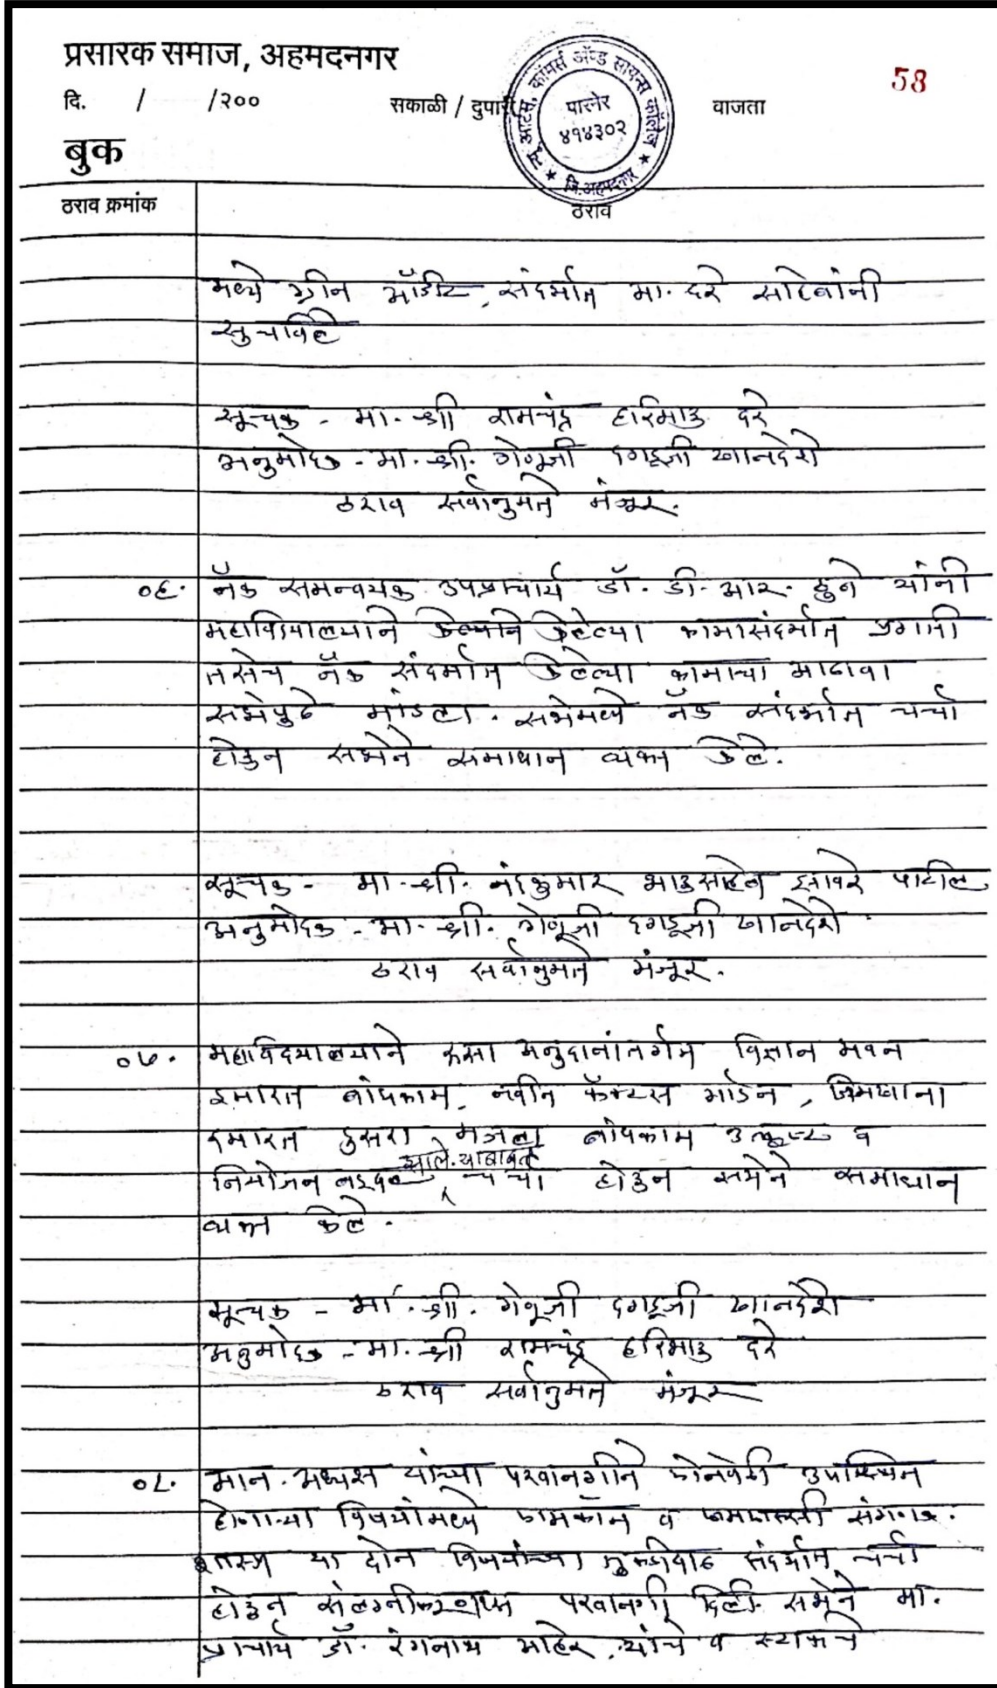 प्रसारक समाज, अहमदनगर
58
दि. / /२०० सकाळी / दुपारी वाजता
न्यू आर्टस्, कॉमर्स ॲण्ड सायन्स कॉलेज
पारनेर
४१४३०२
जि.अहमदनगर
बुक
ठराव क्रमांक ठराव
मध्ये ग्रीन ऑडीट, संदर्भात मा. दरे साहेबांनी
सुचविले
सूचक - मा. श्री रामचंद्र हरिभाऊ दरे
अनुमोदक - मा. श्री. गेणूजी दगडूजी खानदेशे
ठराव सर्वानुमते मंजूर.
०६. नॅक समन्वयक उपप्राचार्य डॉ. डी. आर. ठुबे यांनी
महाविद्यालयाने केलेल्या कामासंदर्भात प्रगती
तसेच नॅक संदर्भात केलेल्या कामाचा आढावा
सभेपुढे मांडला. सभेमध्ये नॅक संदर्भात चर्चा
होऊन सभेने समाधान व्यक्त केले.
सूचक - मा. श्री. नंदकुमार भाऊसाहेब झावरे पाटील
अनुमोदक - मा. श्री. गेणूजी दगडूजी खानदेशे
ठराव सर्वानुमते मंजूर.
०७. महाविद्यालयाने रुसा अनुदानांतर्गत विज्ञान भवन
इमारत बांधकाम, नवीन कॅक्टस गार्डन, जिमखाना
इमारत दुसरा मजला बांधकाम उत्कृष्ट व
नियोजन बद्ध झाले. याबाबत चर्चा होऊन सभेने समाधान
व्यक्त केले.
सूचक - मा. श्री. गेणूजी दगडूजी खानदेशे
अनुमोदक - मा. श्री रामचंद्र हरिभाऊ दरे
ठराव सर्वानुमते मंजूर
०८. मान. अध्यक्ष यांच्या परवानगीने ऐनवेळी उपस्थित
होणाऱ्या विषयांमध्ये एमकॉम व एमएस्सी संगणक
शास्त्र या दोन विषयांच्या संदर्भात चर्चा
होऊन परवानगी दिली. सभेने मा.
प्राचार्य डॉ. रंगनाथ आहेर, यांचे व स्टाफचे